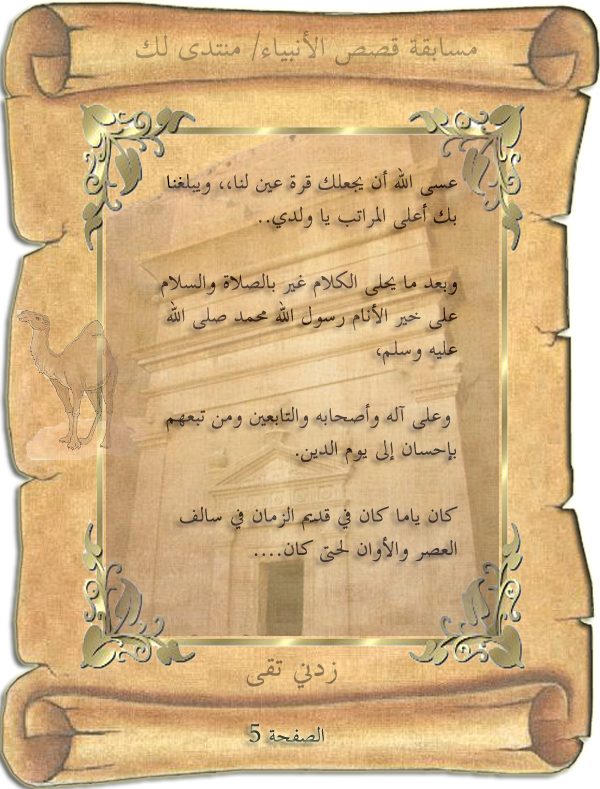 مسابقة قصص الأنبياء/ منتدى لك
عسى الله أن يجعلك قرة عين لنا،، ويبلغنا
بك أعلى المراتب يا ولدي..
وبعد ما يحلى الكلام غير بالصلاة والسلام
على خير الأنام رسول الله محمد صلى الله
عليه وسلم،
وعلى آله وأصحابه والتابعين ومن تبعهم
بإحسان إلى يوم الدين.
كان ياما كان في قديم الزمان في سالف
العصر والأوان لحتى كان....
زدني تقى
الصفحة 5